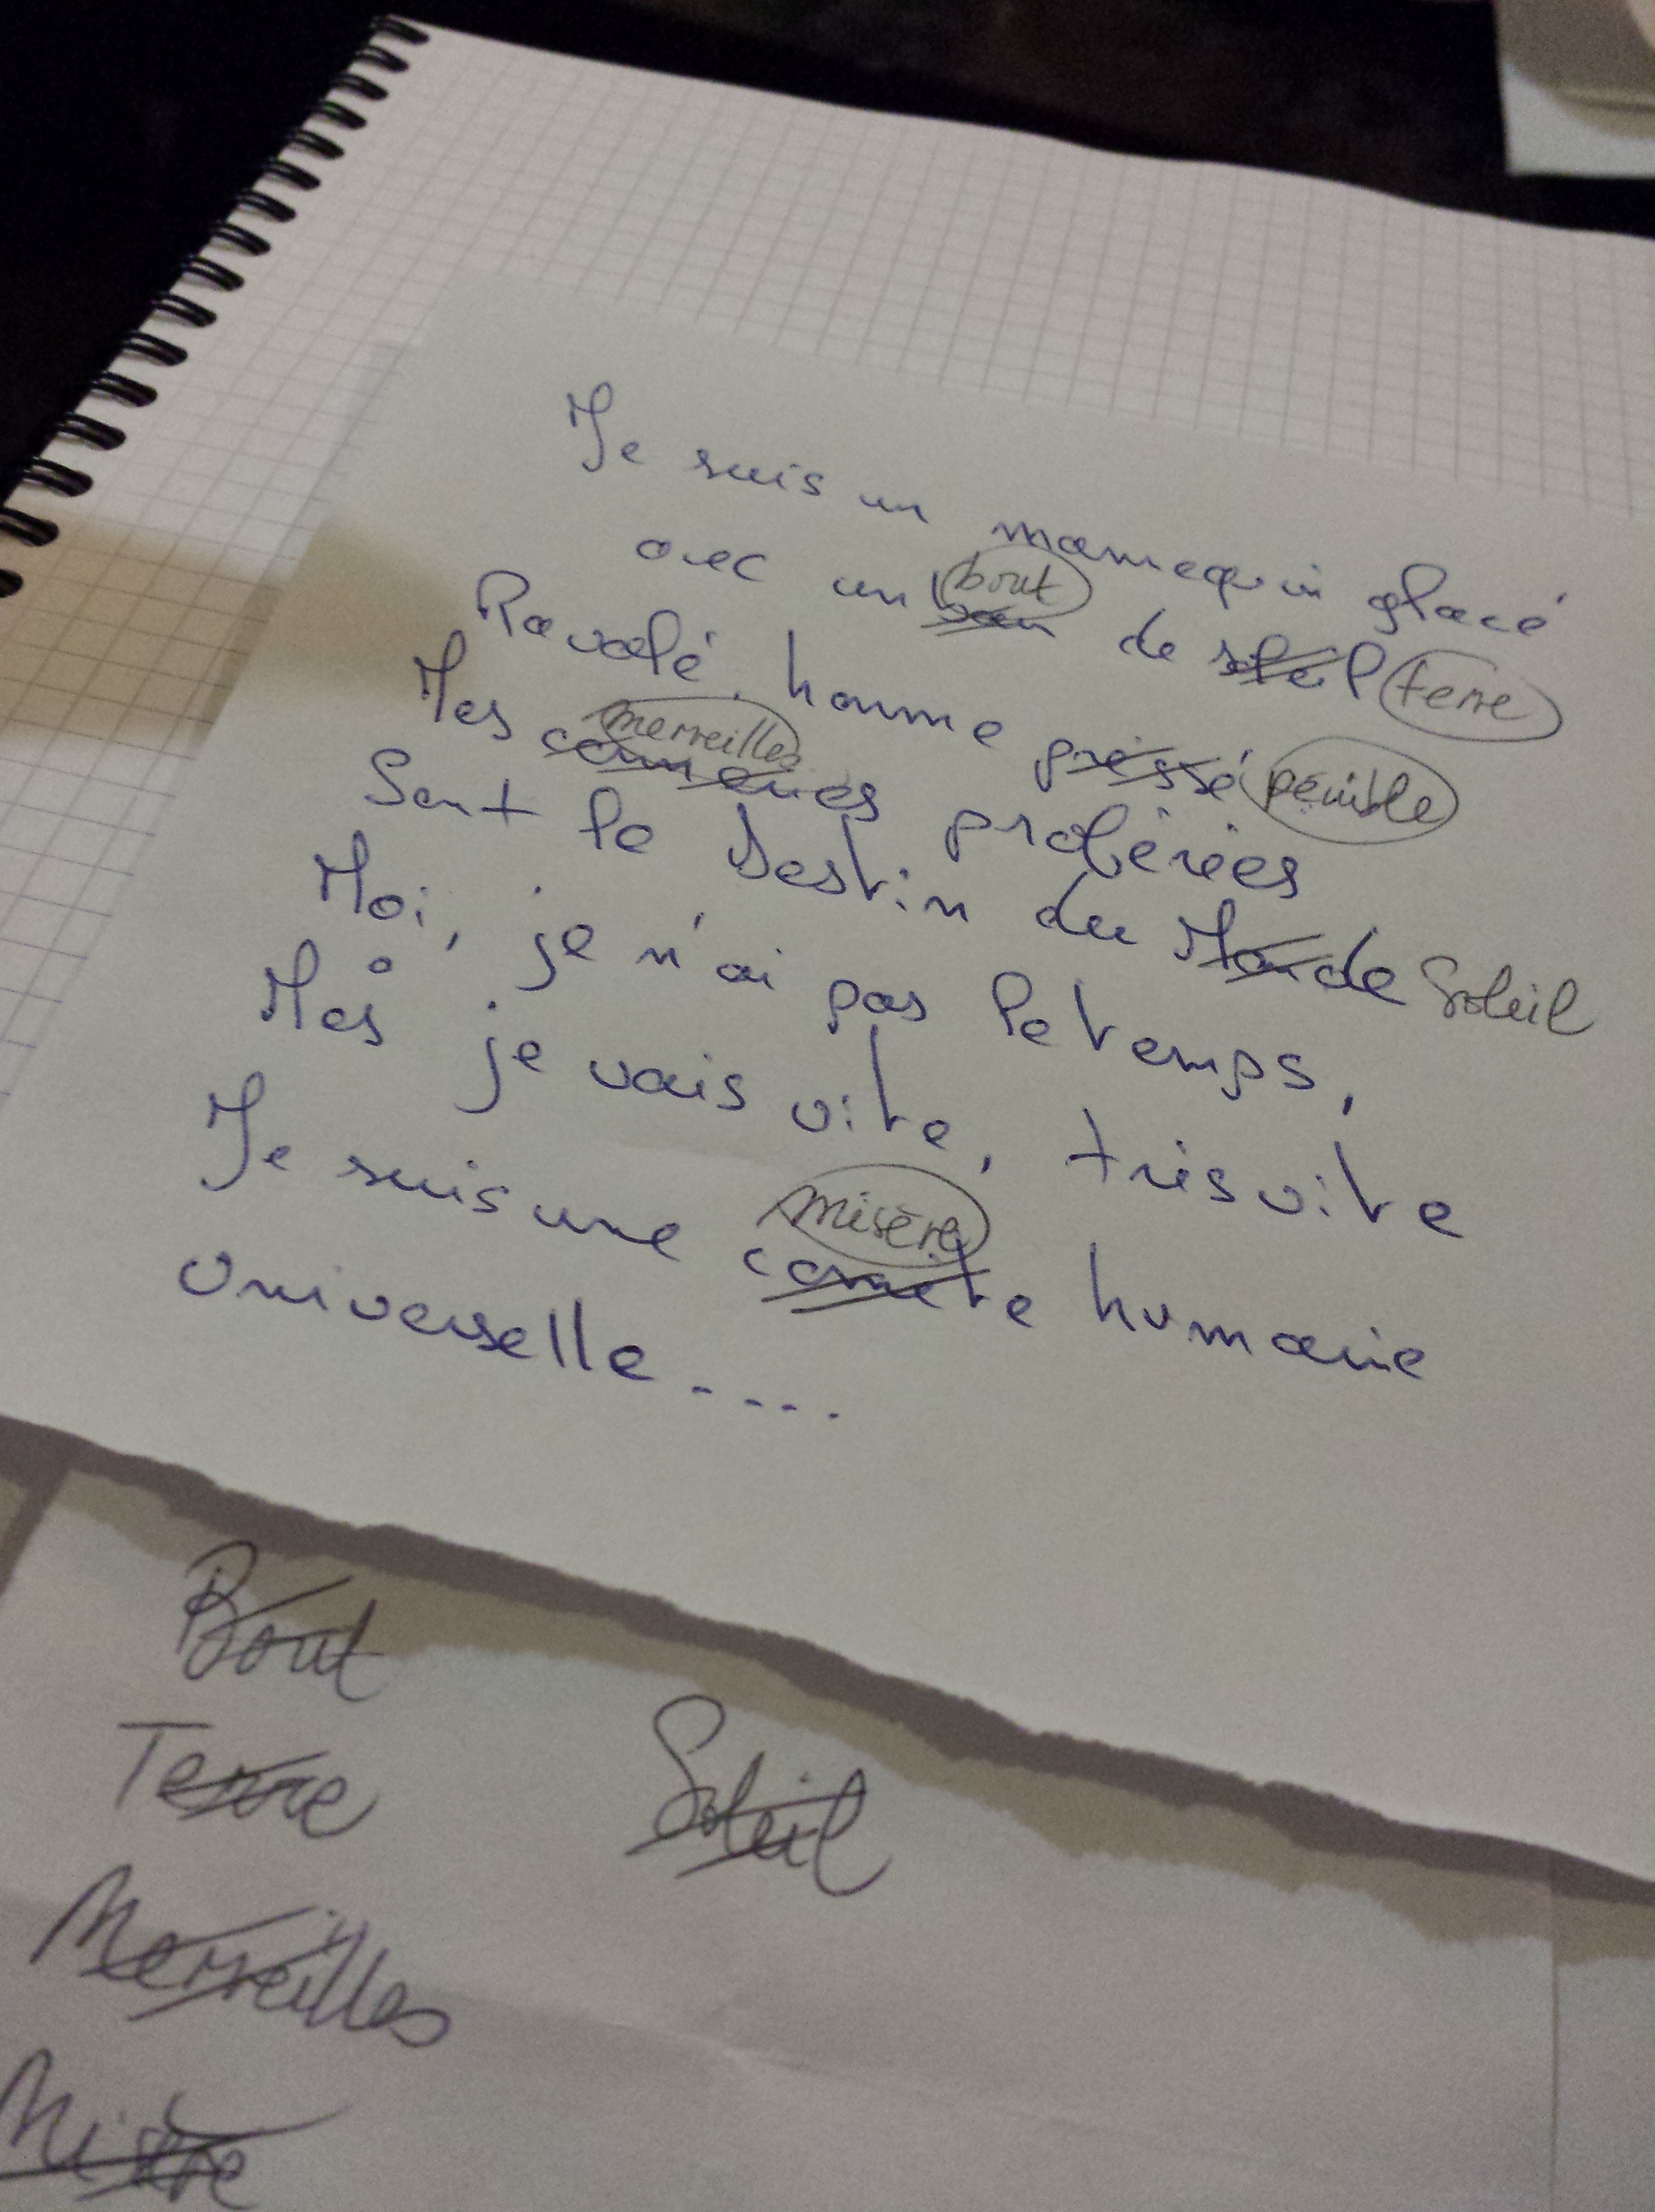 Je suis un mannequin glacé
avec un bout de soleil terre
Ravalé, homme pressé pénible
Mes merveilles proférées
Sont le Destin du Monde Soleil
Moi, je n'ai pas le temps,
Mes je vais vite, très vite
Je suis une misère comète humaine
Universelle....
Bout
Terre Soleil
Merveilles
Misère